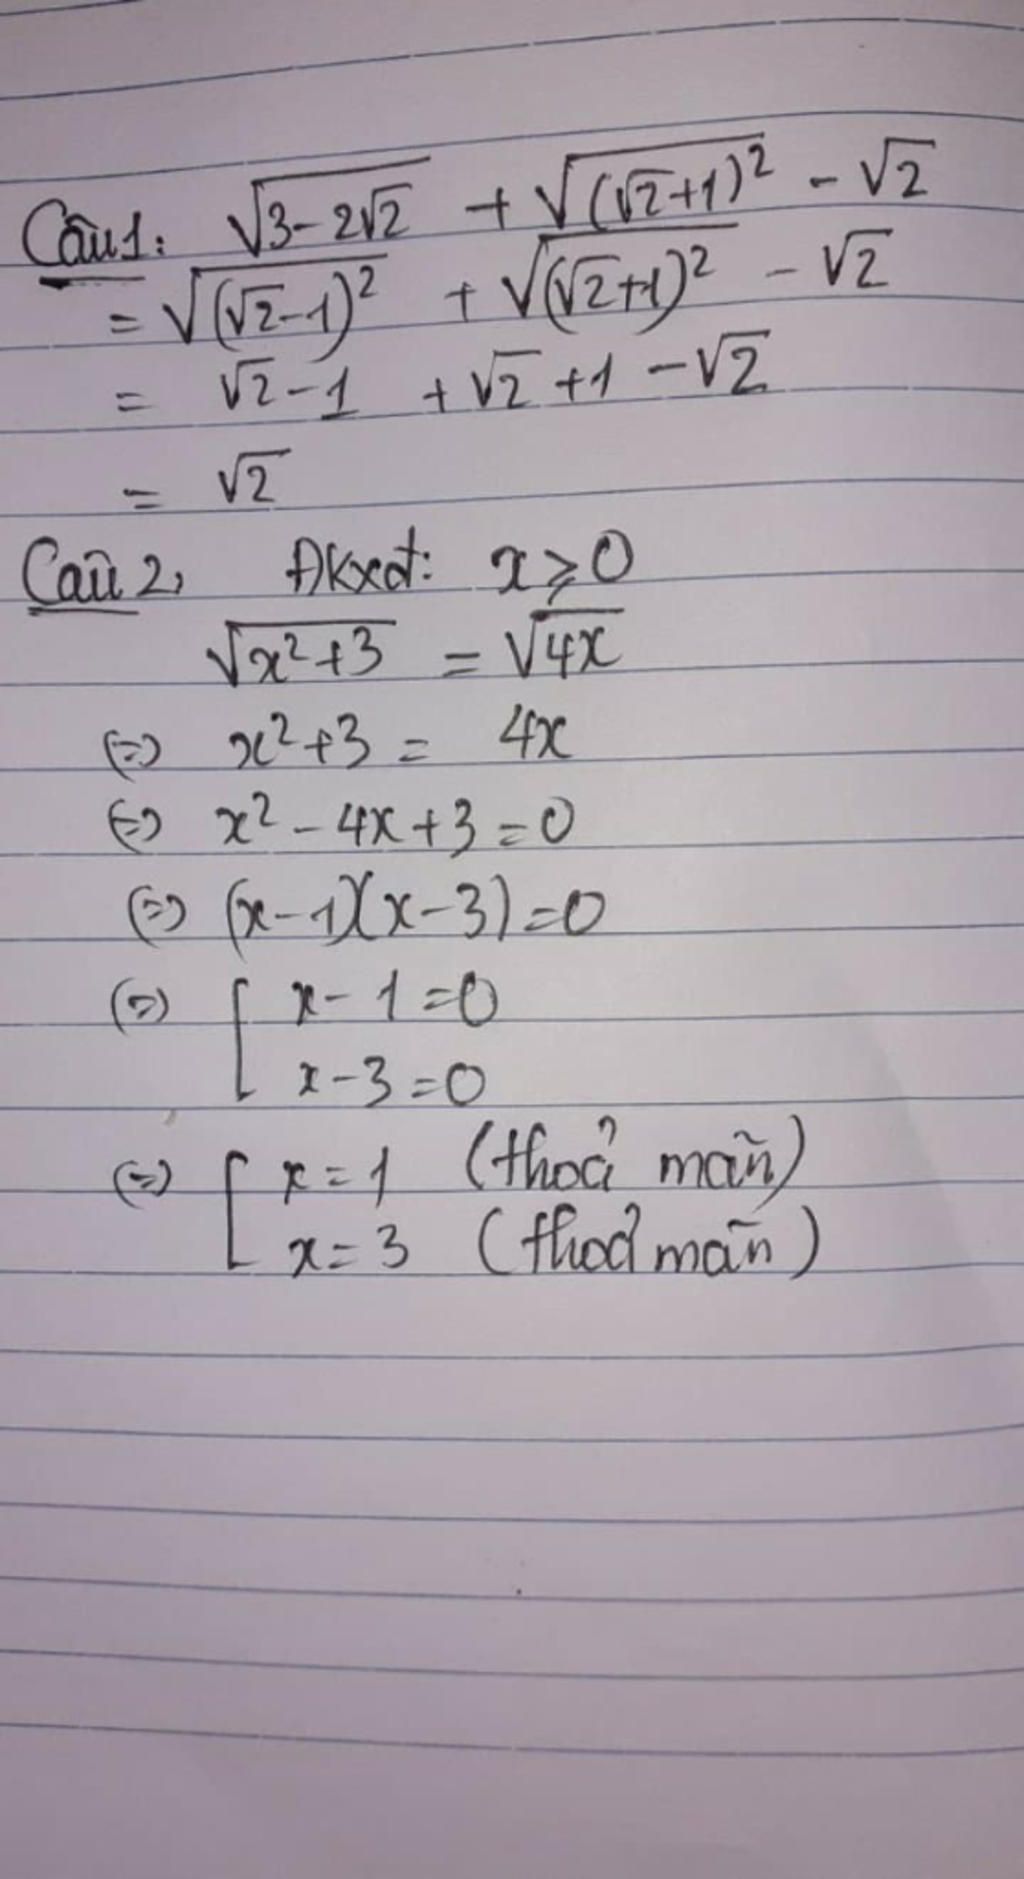 Câu 1: √(3-2√2) + √((√2+1)²) - √2
= √((√2-1)²) + √((√2+1)²) - √2
= √2-1 + √2+1 -√2
= √2
Câu 2, Đkxđ: x⩾0
√(x²+3) = √(4x)
(=) x²+3 = 4x
(=) x² - 4x+3 =0
(=) (x-1)(x-3)=0
(=) [ x-1=0
x-3=0
(=) [ x=1 (thoả mãn)
x=3 (thoả mãn)